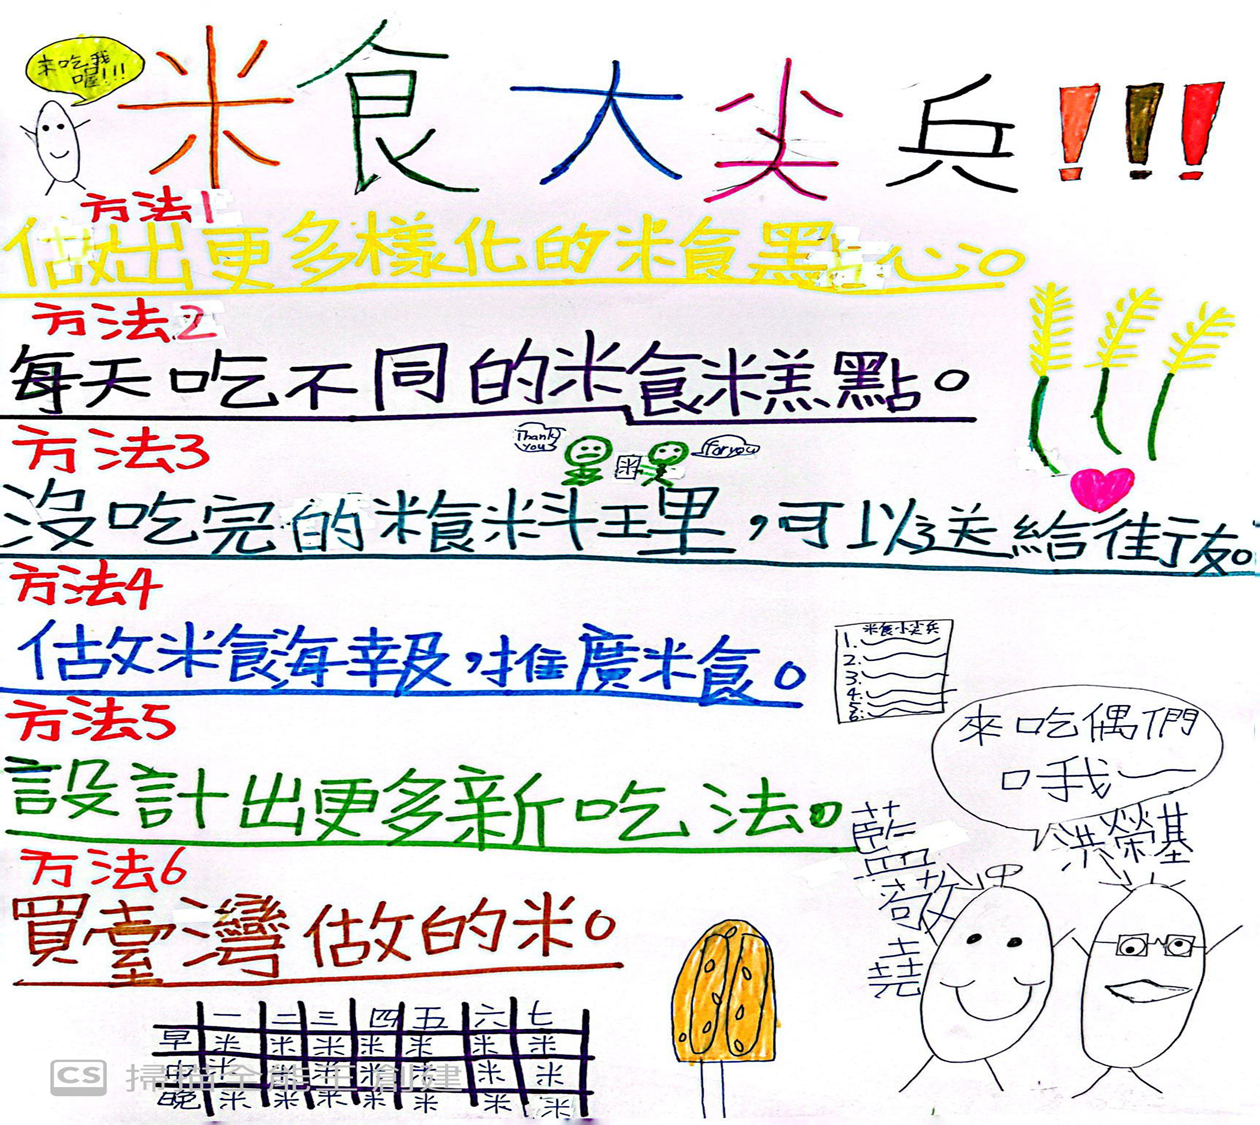 來吃我
喔!!!
米食大尖兵!!!
方法1
做出更多樣化的米食點心。
方法2
每天吃不同的米食米糕點。
方法3
Thank you
for you
米
沒吃完的米食料理，可以送給街友。
方法4
做米食海報，推廣米食。
米食小尖兵
1.
2.
3.
4.
5.
6.
方法5
設計出更多新吃法。
來吃偶們
口我一
洪榮基
方法6
買臺灣做的米。
一 二 三 四 五 六 七
早 米 米 米 米 米 米 米
中 米 米 米 米 米 米 米
晚 米 米 米 米 米 米 米
CS 掃描全能王 創建